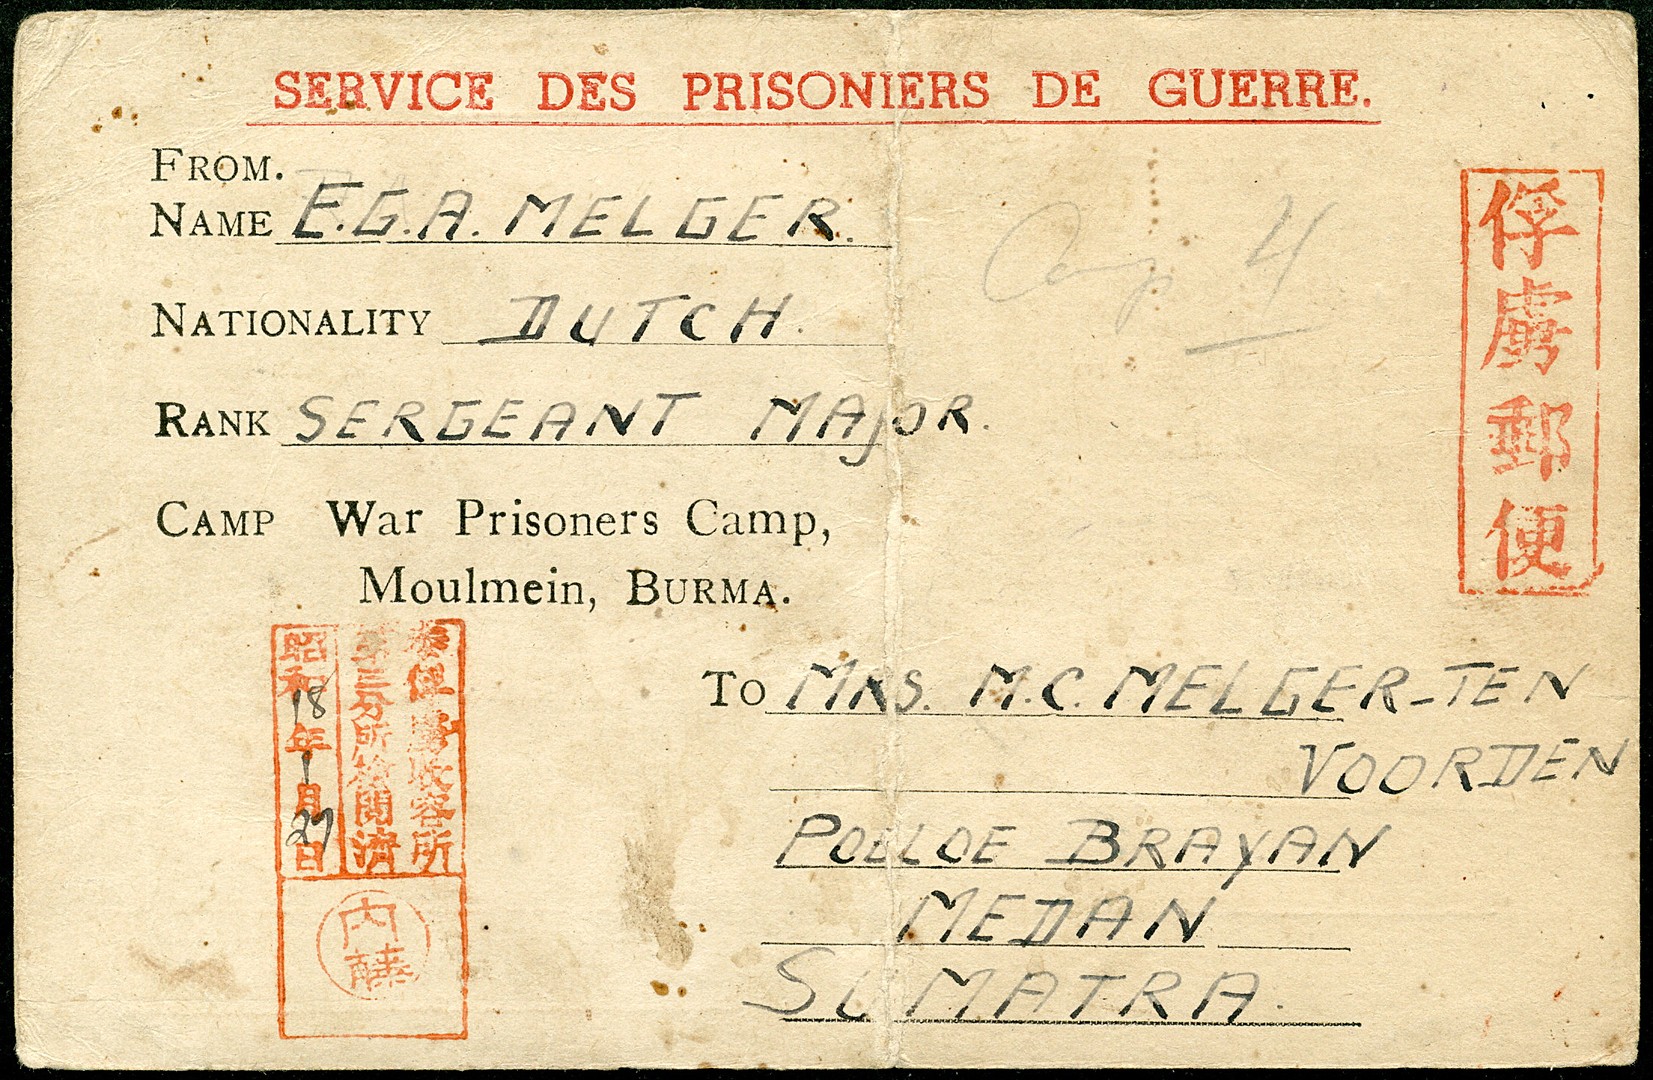 SERVICE DES PRISONIERS DE GUERRE.
FROM.
NAME E.G.A. MELGER.
Camp 4
NATIONALITY DUTCH.
RANK SERGEANT MAJOR.
CAMP War Prisoners Camp,
Moulmein, BURMA.
俘虜郵便
俘虜收容所
第三分所檢閲濟
昭和18年1月27日
内藤
TO MRS. M.C. MELGER-TEN
VOORDEN
POELOE BRAYAN
MEDAN
SUMATRA.